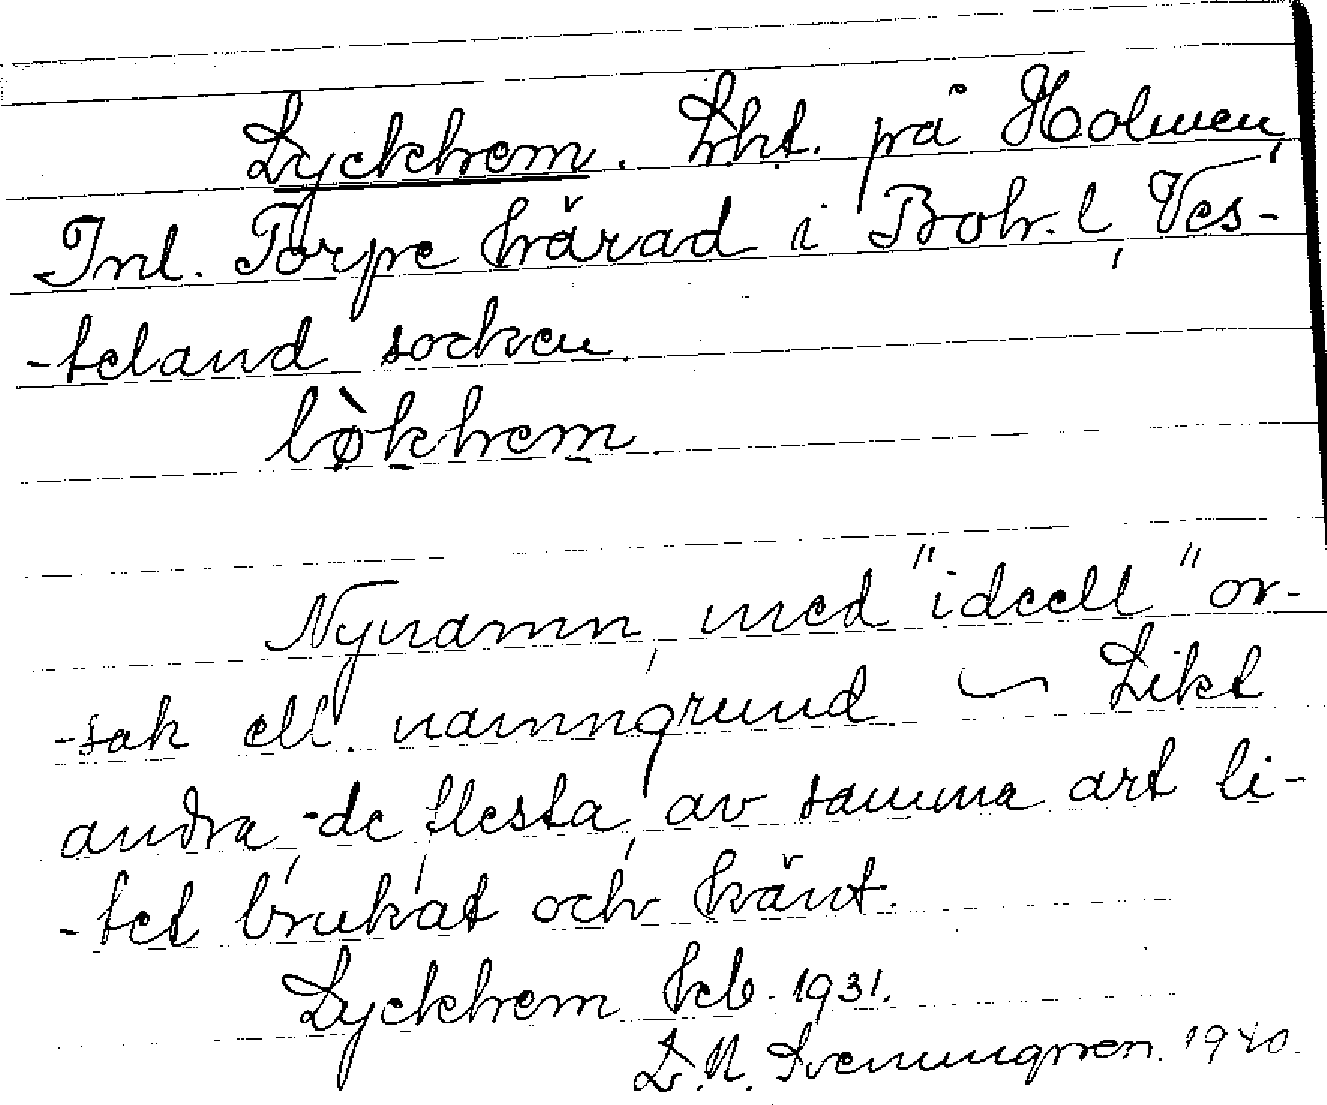 Lyckhem. Lht. på Holmen,
Inl. Torpe härad i Boh. l, Ves-
-teland socken
lø̀khem
Nynamn, med "ideell" or-
-sak ell. namngrund ~ Likt
andra, de flesta, av samma art li-
-tet brukat och känt.
Lyckhem kb. 1931.
1940.